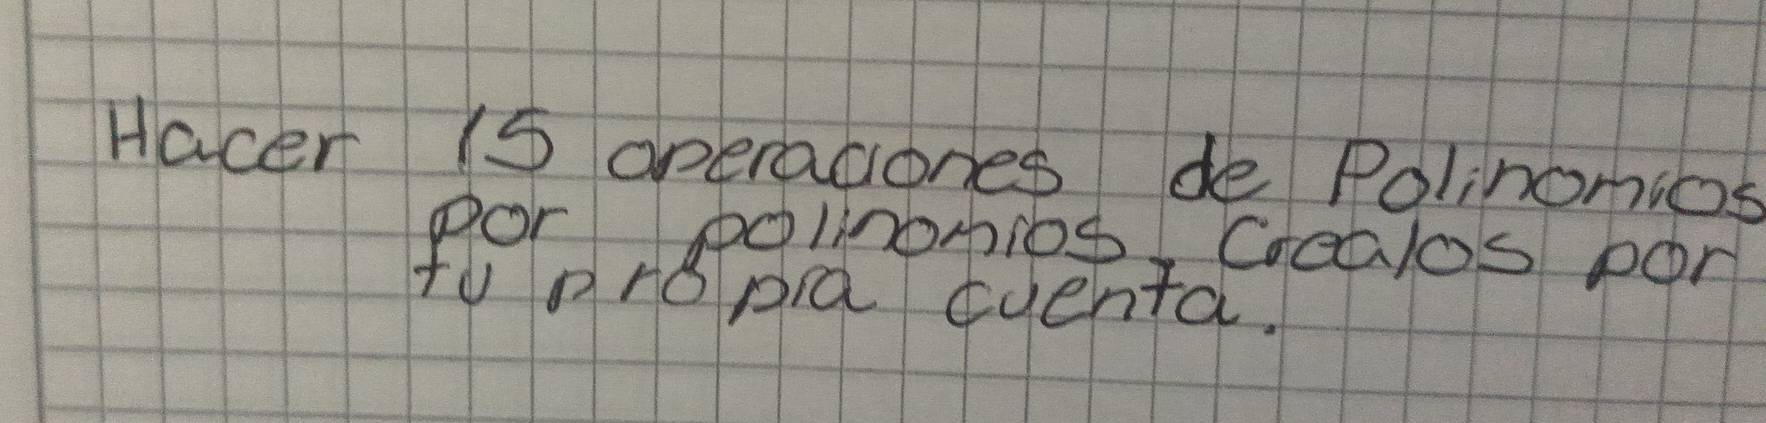 Hacer 15 operaciones de Polinomios
por polinomios. Crealos por
tu propia cuenta.